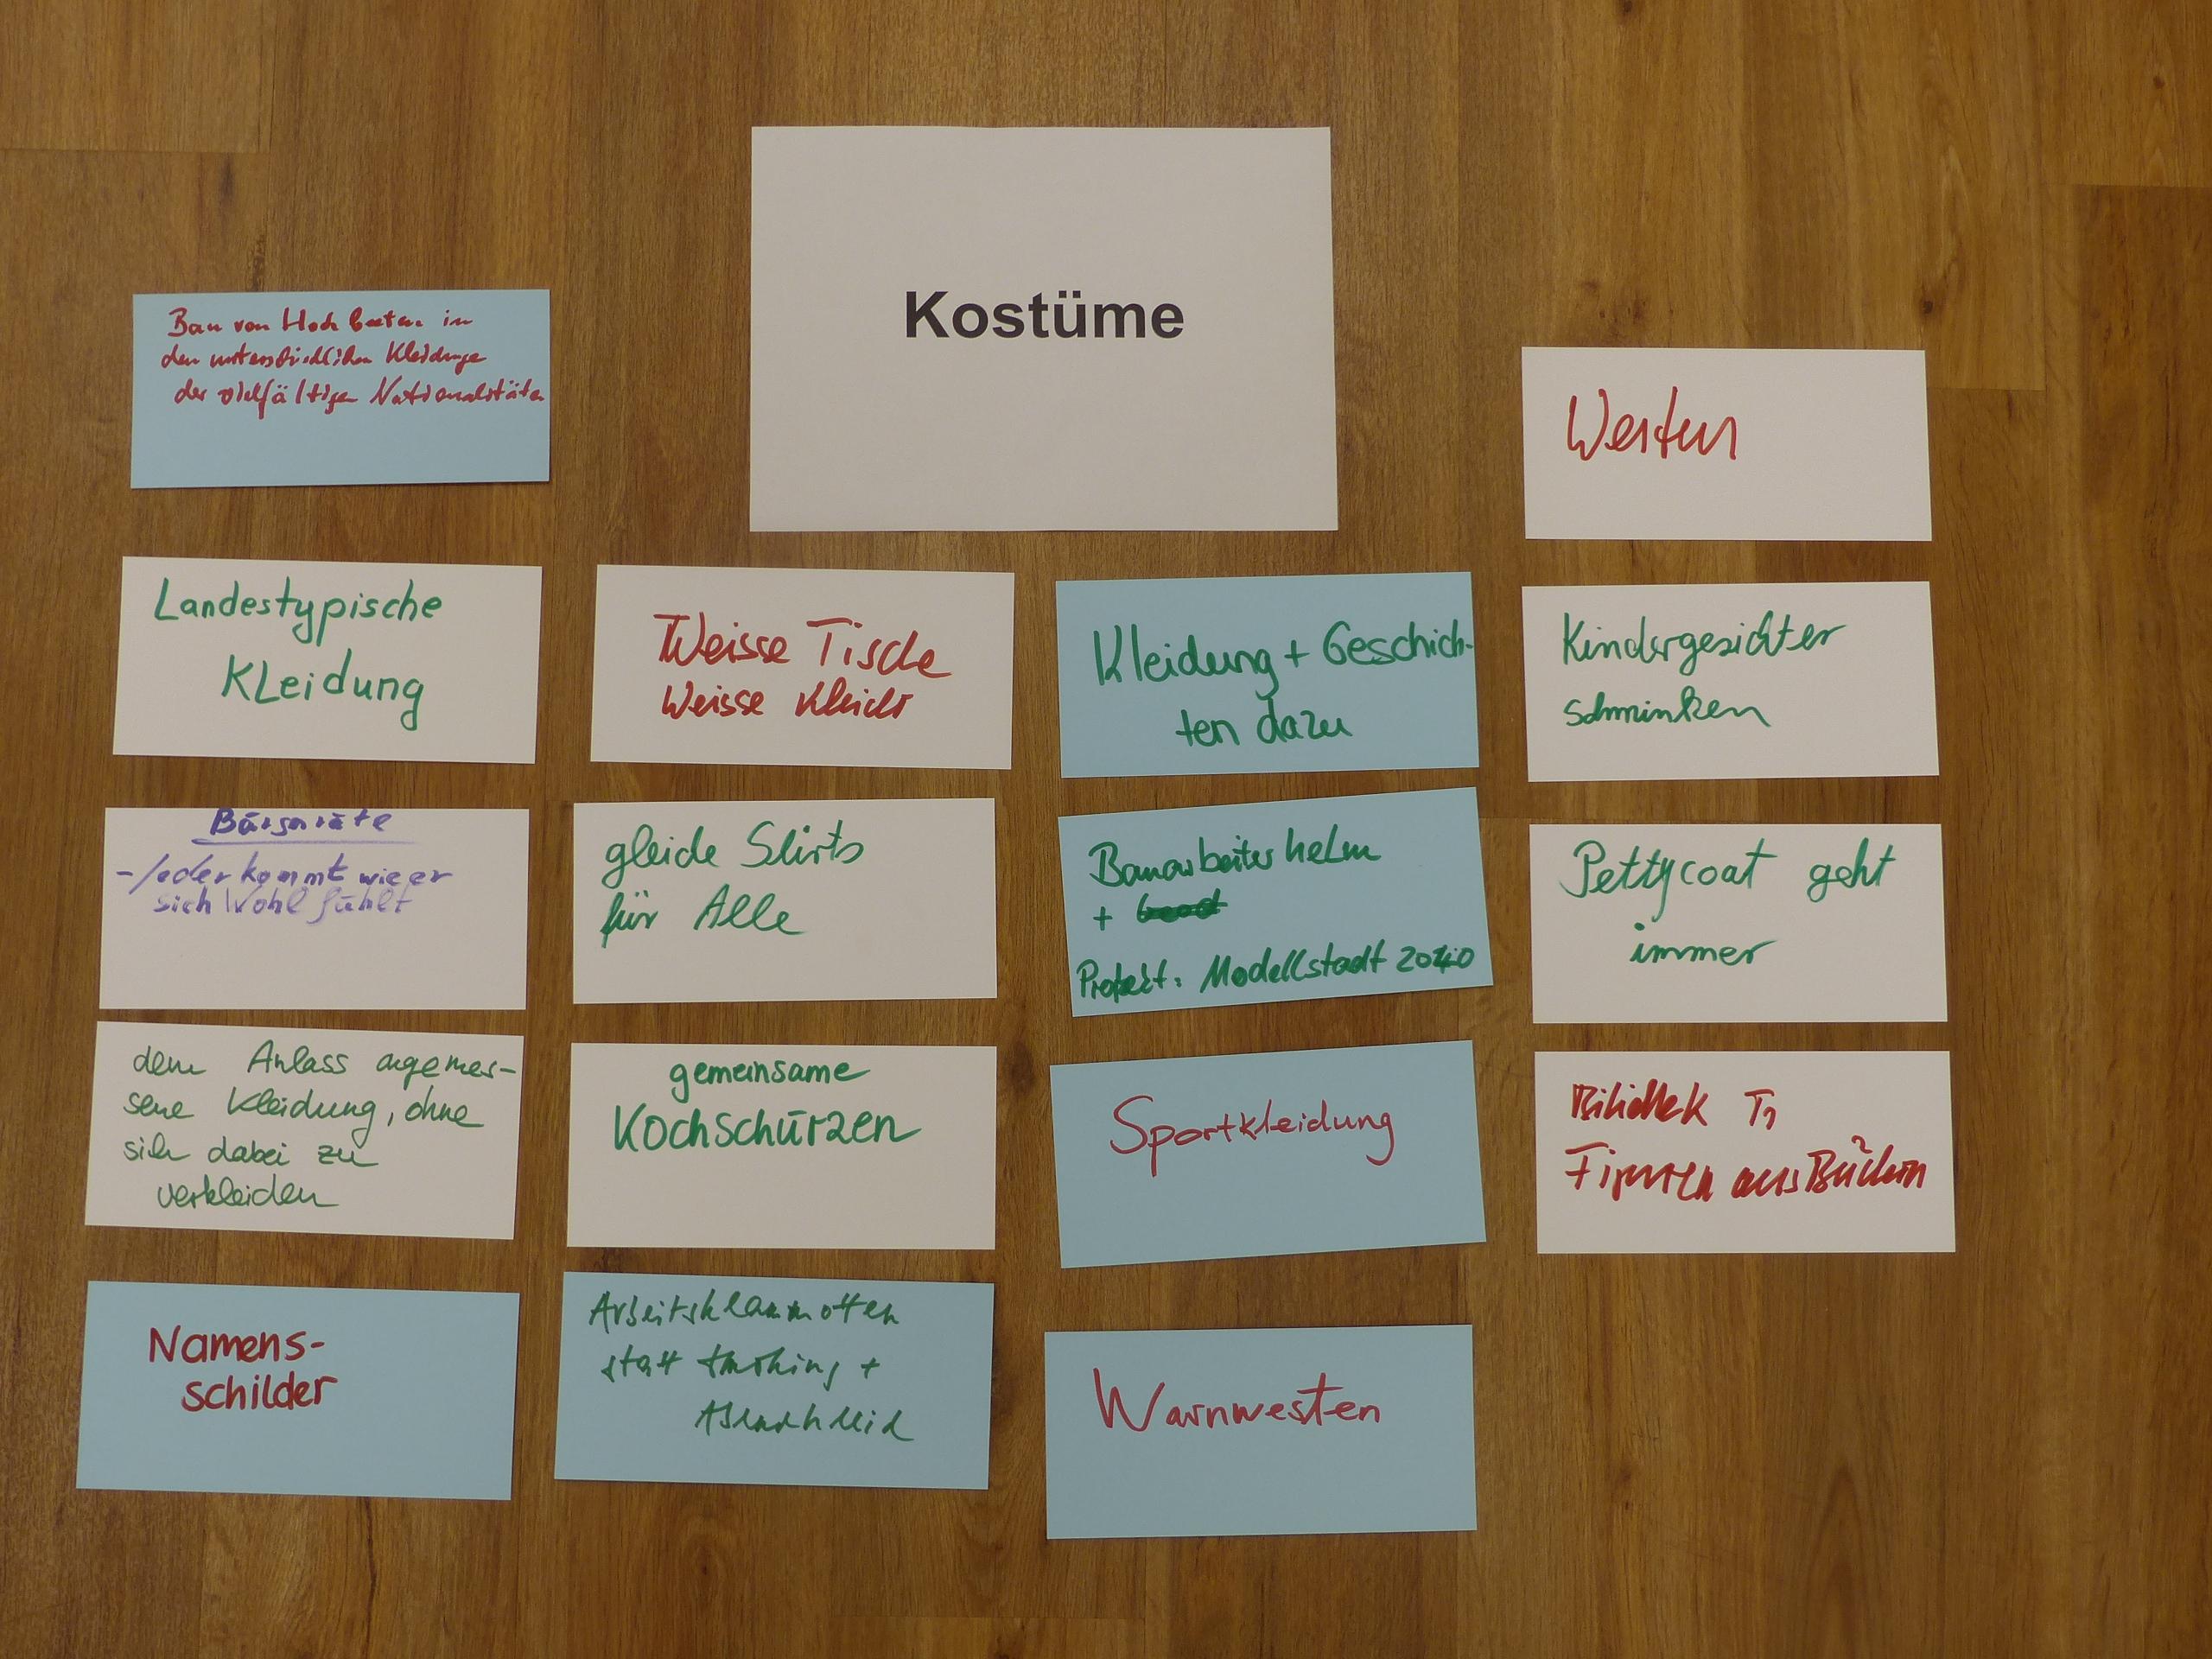 Kostüme
Bau von Hochbeeten in
den unterschiedlichen Kleidunge
der vielfältigen Nationalitäten
Landestypische
Kleidung
Bürgeräte
- Jeder kommt wie er
sich Wohl fühlt
dem Anlass angemes-
sene Kleidung, ohne
sich dabei zu
verkleiden
Namens-
schilder
Weisse Tische
Weisse Kleider
gleiche Shirts
für Alle
gemeinsame
Kochschürzen
Arbeitsklammotten
statt Smoking +
Abendkleid
Kleidung + Geschich-
ten dazu
Bauarbeiterhelm
+
Projekt: Modellstadt 2040
Sportkleidung
Warnwesten
Westen
Kindergesichter
schminken
Pettycoat geht
immer
Figuren aus Büchern